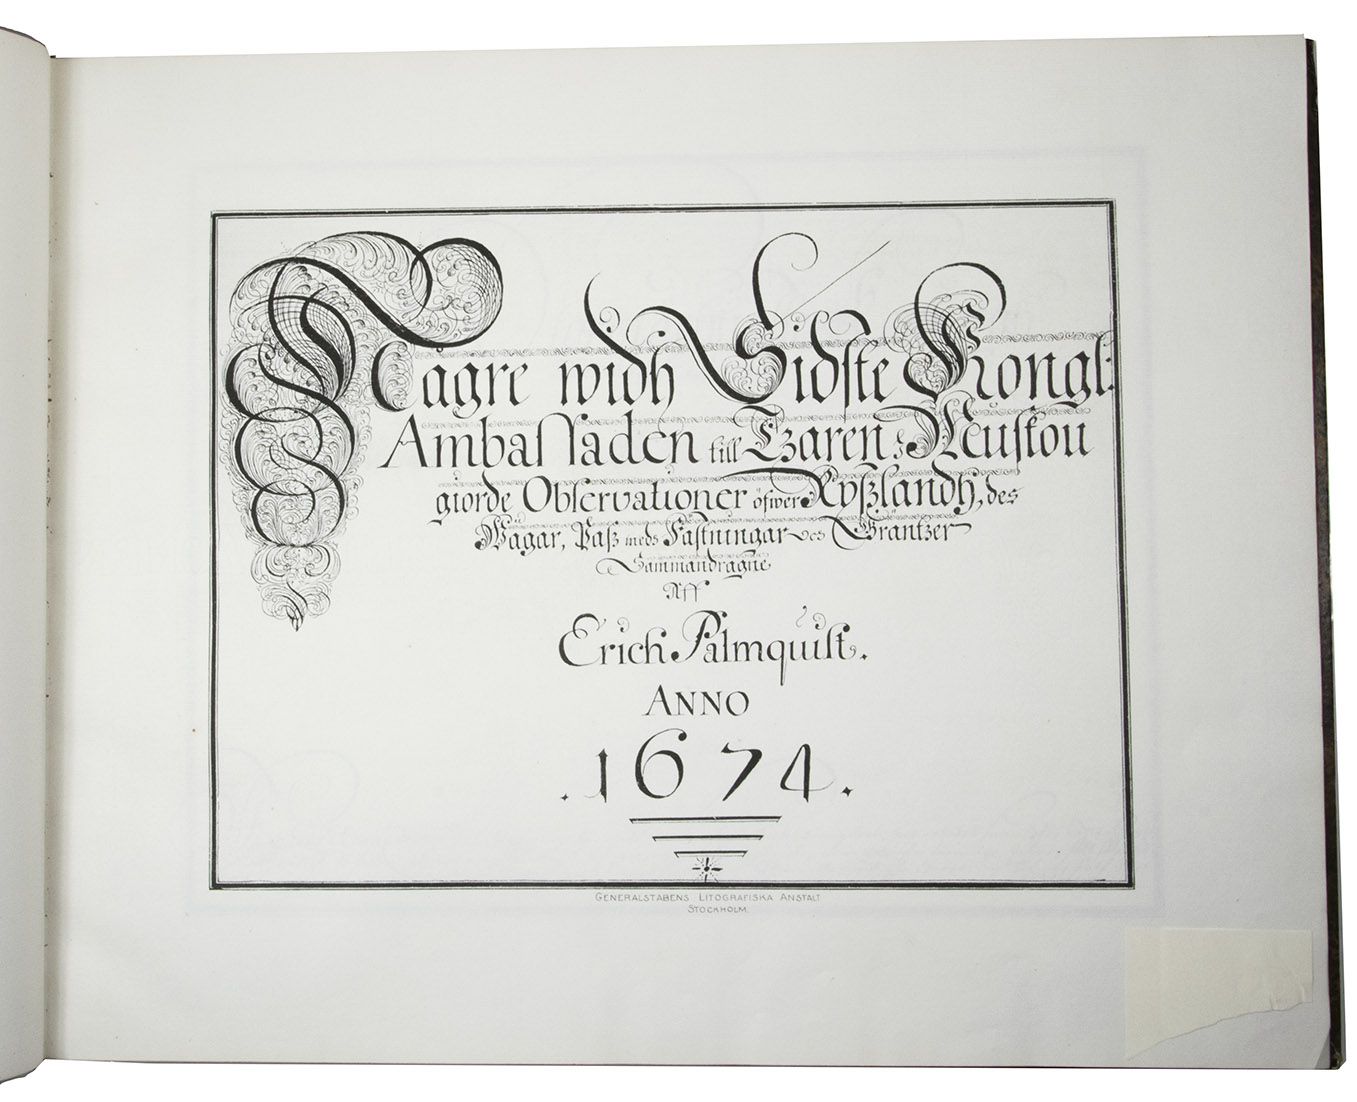 Någre widh Sidste Kongl:
Ambassaden till Tzaren i Muskou
giorde Observationer öfwer Ryßlandh, des
Wägar, Paß medh Fästningar och Gräntzer
Sammandragne
Aff
Erich Palmquist.
ANNO
.1674.
GENERALSTABENS LITOGRAFISKA ANSTALT
STOCKHOLM.